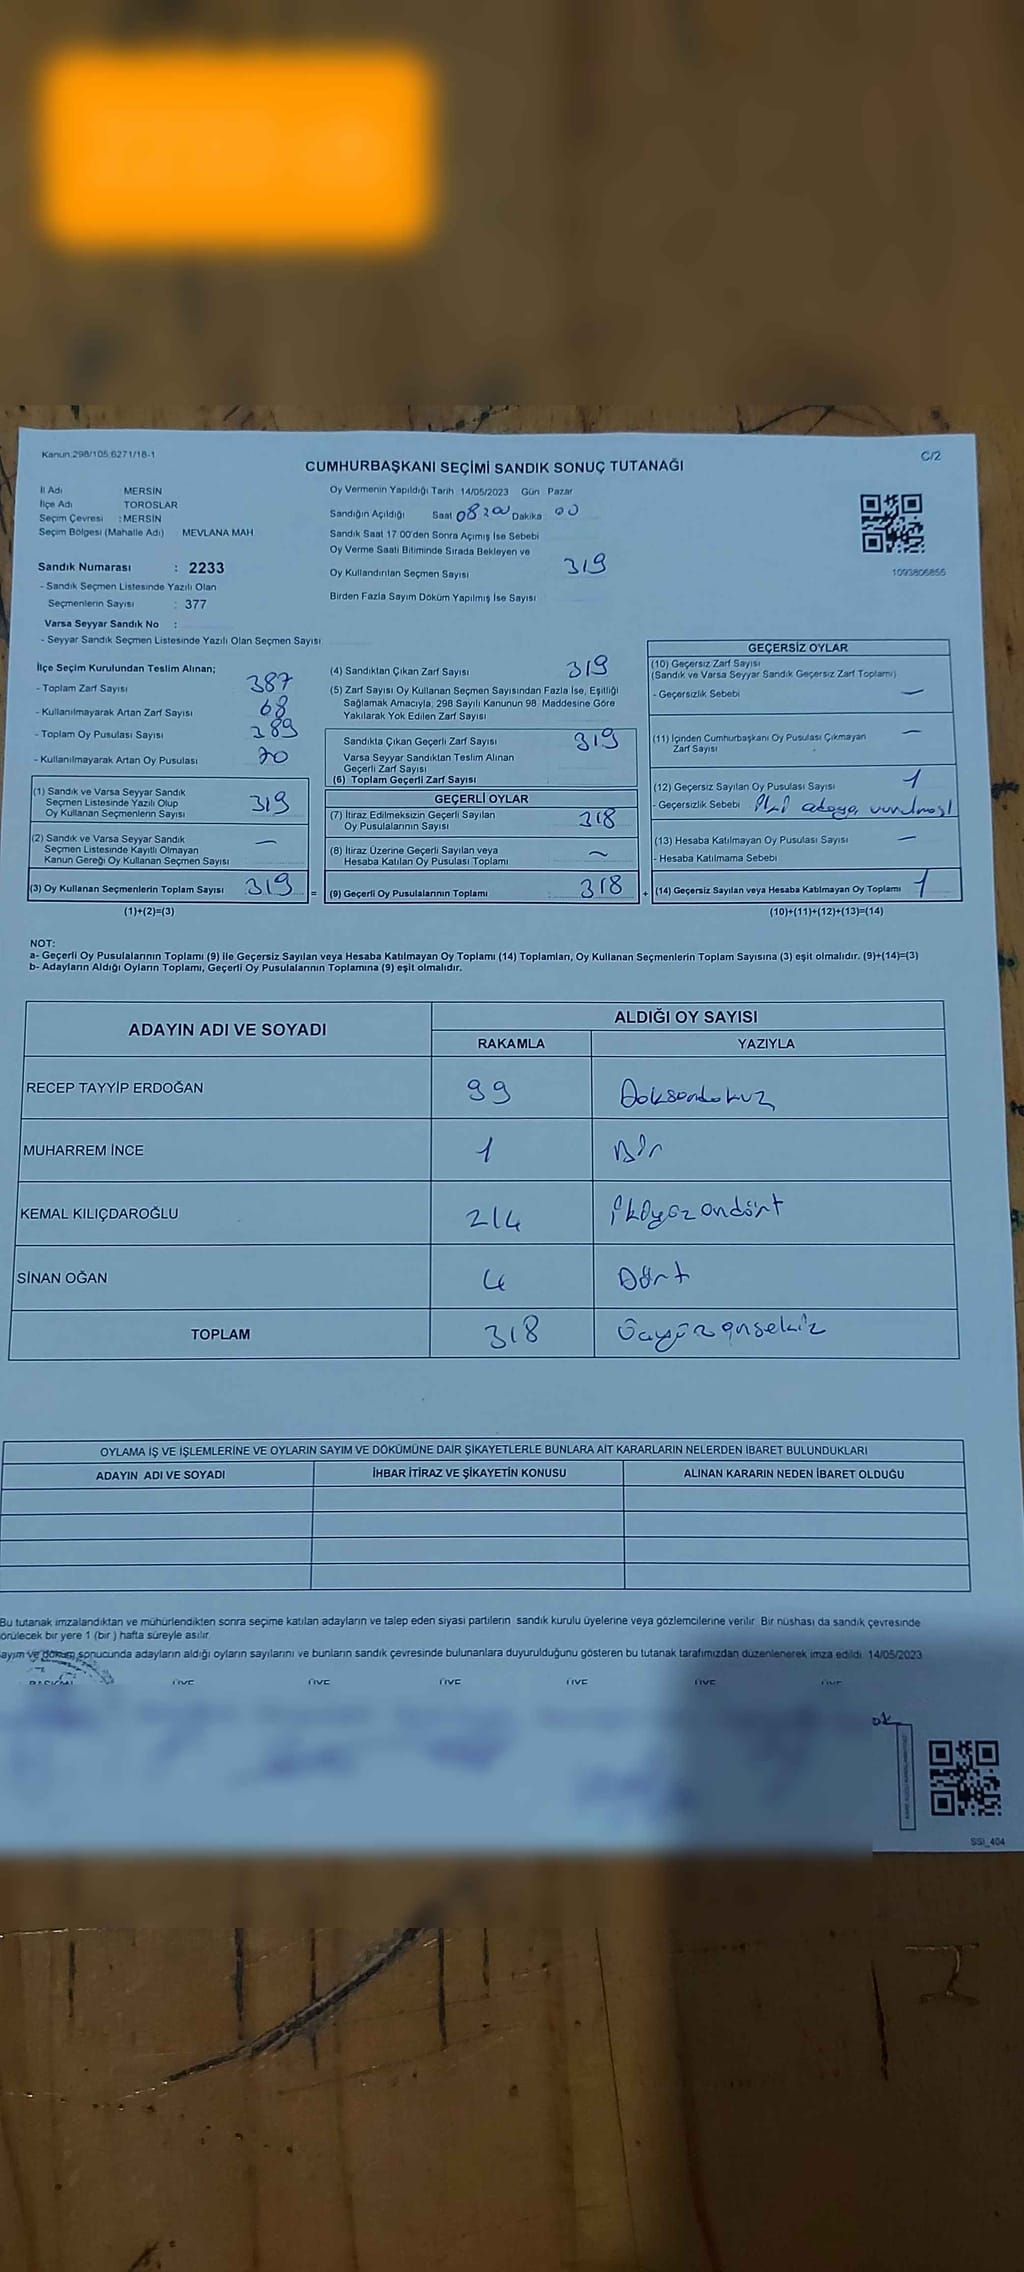 Kanun:298/105;6271/18-1
C/2
CUMHURBAŞKANI SEÇİMİ SANDIK SONUÇ TUTANAĞI
İl Adı MERSİN
İlçe Adı TOROSLAR
Seçim Çevresi : MERSİN
Seçim Bölgesi (Mahalle Adı) MEVLANA MAH
Sandık Numarası : 2233
- Sandık Seçmen Listesinde Yazılı Olan
Seçmenlerin Sayısı : 377
Varsa Seyyar Sandık No :
- Seyyar Sandık Seçmen Listesinde Yazılı Olan Seçmen Sayısı
Oy Vermenin Yapıldığı Tarih 14/05/2023 Gün Pazar
Sandığın Açıldığı Saat 08 Dakika 00
Sandık Saat 17 00'den Sonra Açımış İse Sebebi
Oy Verme Saati Bitiminde Sırada Bekleyen ve
Oy Kullandırılan Seçmen Sayısı 319
Birden Fazla Sayım Döküm Yapılmış İse Sayısı
1093806855
İlçe Seçim Kurulundan Teslim Alınan;
- Toplam Zarf Sayısı 387
- Kullanılmayarak Artan Zarf Sayısı 68
- Toplam Oy Pusulası Sayısı 389
- Kullanılmayarak Artan Oy Pusulası 70
(1) Sandık ve Varsa Seyyar Sandık
Seçmen Listesinde Yazılı Olup
Oy Kullanan Seçmenlerin Sayısı 319
(2) Sandık ve Varsa Seyyar Sandık
Seçmen Listesinde Kayıtlı Olmayan
Kanun Gereği Oy Kullanan Seçmen Sayısı —
(3) Oy Kullanan Seçmenlerin Toplam Sayısı 319 =
(1)+(2)=(3)
(4) Sandıktan Çıkan Zarf Sayısı 319
(5) Zarf Sayısı Oy Kullanan Seçmen Sayısından Fazla İse, Eşitliği
Sağlamak Amacıyla, 298 Sayılı Kanunun 98. Maddesine Göre
Yakılarak Yok Edilen Zarf Sayısı
Sandıkta Çıkan Geçerli Zarf Sayısı 319
Varsa Seyyar Sandıktan Teslim Alınan
Geçerli Zarf Sayısı
(6) Toplam Geçerli Zarf Sayısı :
GEÇERLİ OYLAR
(7) İtiraz Edilmeksizin Geçerli Sayılan
Oy Pusulalarının Sayısı 318
(8) İtiraz Üzerine Geçerli Sayılan veya
Hesaba Katılan Oy Pusulası Toplamı —
(9) Geçerli Oy Pusulalarının Toplamı : 318 +
GEÇERSİZ OYLAR
(10) Geçersiz Zarf Sayısı
(Sandık ve Varsa Seyyar Sandık Geçersiz Zarf Toplamı)
- Geçersizlik Sebebi —
(11) İçinden Cumhurbaşkanı Oy Pusulası Çıkmayan
Zarf Sayısı —
(12) Geçersiz Sayılan Oy Pusulası Sayısı 1
- Geçersizlik Sebebi İki adaya vurulmuş
(13) Hesaba Katılmayan Oy Pusulası Sayısı —
- Hesaba Katılmama Sebebi
(14) Geçersiz Sayılan veya Hesaba Katılmayan Oy Toplamı 1
(10)+(11)+(12)+(13)=(14)
NOT:
a- Geçerli Oy Pusulalarının Toplamı (9) ile Geçersiz Sayılan veya Hesaba Katılmayan Oy Toplamı (14) Toplamları, Oy Kullanan Seçmenlerin Toplam Sayısına (3) eşit olmalıdır. (9)+(14)=(3)
b- Adayların Aldığı Oyların Toplamı, Geçerli Oy Pusulalarının Toplamına (9) eşit olmalıdır.
ADAYIN ADI VE SOYADI ALDIĞI OY SAYISI
RAKAMLA YAZIYLA
RECEP TAYYİP ERDOĞAN 99 Doksandokuz
MUHARREM İNCE 1 Bir
KEMAL KILIÇDAROĞLU 214 İkiyüz ondört
SİNAN OĞAN 4 Dört
TOPLAM 318 Üçyüz onsekiz
OYLAMA İŞ VE İŞLEMLERİNE VE OYLARIN SAYIM VE DÖKÜMÜNE DAİR ŞİKAYETLERLE BUNLARA AİT KARARLARIN NELERDEN İBARET BULUNDUKLARI
ADAYIN ADI VE SOYADI İHBAR İTİRAZ VE ŞİKAYETİN KONUSU ALINAN KARARIN NEDEN İBARET OLDUĞU
Bu tutanak imzalandıktan ve mühürlendikten sonra seçime katılan adayların ve talep eden siyasi partilerin sandık kurulu üyelerine veya gözlemcilerine verilir. Bir nüshası da sandık çevresinde
örülecek bir yere 1 (bir) hafta süreyle asılır.
ayım ve döküm sonucunda adayların aldığı oyların sayılarını ve bunların sandık çevresinde bulunanlara duyurulduğunu gösteren bu tutanak tarafımızdan düzenlenerek imza edildi. 14/05/2023
BAŞKAN ÜYE ÜYE ÜYE ÜYE ÜYE ÜYE
SSI_404